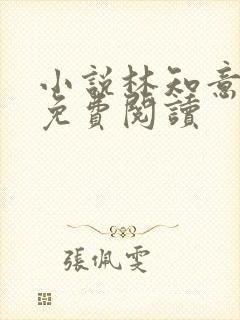 小說林知意
免費閱讀
張佩雯